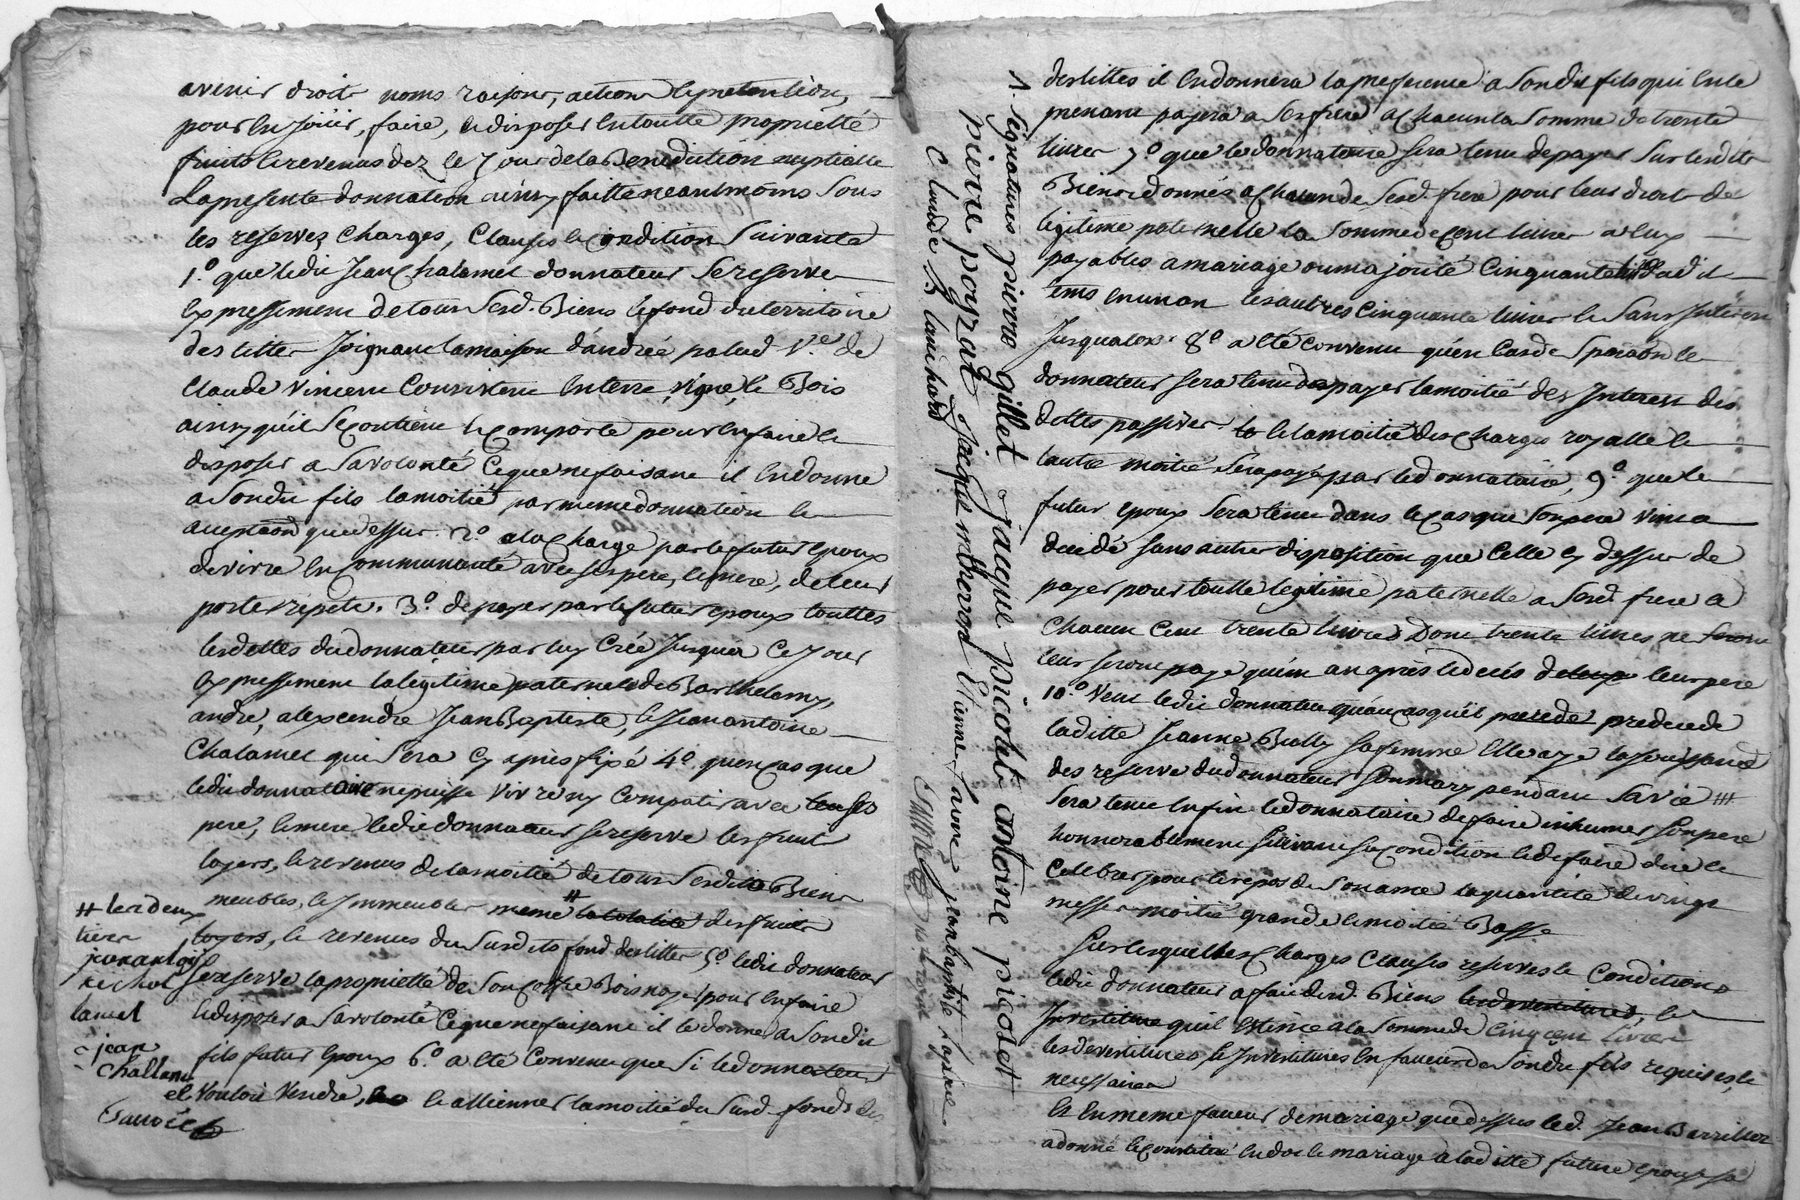 avenir droits noms raisons, actions et pretentions,
pour en jouir, faire, et disposer en toutte proprietté
fruits et revenus dez le jour de la Benediction nuptialle
La presente donnation ainsy faitte neantmoins sous
les reserves charges, clauses et condition suivante
1.° que ledit Jean Chalamel donnateur se reserve
expressement de tous sesd. Biens le fond du territoire
des littes joignant la maison d'andrée palud v.e de
Claude Vincent consistent en terre, vigne, et Bois
ainsy qu'il se contient et comporte pour en faire et
disposer a sa volonté et ce que ne faisant il en donne
a sondit fils la moitié par meme donnation et
acceptation que dessus. 2.° a la charge par le futur epoux
de vivre en communauté avec ses pere, et mere, de leur
porter respets. 3.° de payer par le futur epoux touttes
les dettes du donnateur par luy créé jusqu'a ce jour
expressement la legitime paternele de Barthelemy,
andré, alexcendre Jean Baptiste, et Jean antoine
Chalamel qui sera cy apres fixé 4.° qu'en cas que
ledit donnataire ne puisse vivre ny compatir avec ses
pere, et mere ledit donnateur se reserve les fruit
loyers, et revenus de la moitié de tous sesdits Biens
meubles, et Immeubles meme # la totalité des fruits
loyers, et revenus du susdits fond des littes 5.° ledit donnateur
se reserve la proprietté de son coffre Bois noyer pour en faire
et disposer a sa volonté et ce que ne faisant il le donne a sondit
fils futur epoux 6.° a eté convenu que si le donnateur
vouloit vendre, et alliener la moitié du susd. fonds des
# les deux
tiers
jean antoi
ne chal
amel
jean
challam
el
deslittes il en donnera la preference a sondit fils qui en le
prenant payera a ses frere a chacun la somme de trente
livres 7.° que le donnataire sera tenu de payer sur lesdits
Biens donnés a chacun de sesd. frere pour leur droit de
legitime paternelle la somme de cent livres a eux
payables a mariage ou majorité cinquante livres audit
tems en un an les autres cinquante livres et sans Interets
jusqu'alors 8.° a eté convenu qu'en cas de separation le
donnateur sera tenu de payer la moitié des Interest des
dettes passives et la moitié des charges royalle et
lautre moitié sera payé par le donnataire, 9.° que le
futur epoux sera tenu dans le cas que son pere vint a
decédé sans autre disposition que celle cy dessus de
payer pour toutte legitime paternelle a sesd. frere a
chacun cent trente livres Dont trente livres ne seront
leur seront payé qu'un an après le decés de leur pere
10.° Veut ledit donnateur qu'au cas qu'il predecede
laditte Jeanne Bully sa femme elle aye la jouissance
des reserve du donnateur son mary pendant sa vie #
sera tenu enfin le donnataire de faire inhumer son pere
honnorablement suivant sa condition et de faire dire et
celebrer pour le repos de son ame la quantité de vingt
messes moitié grande et moitié Basse
Sur lesquelles charges clauses reserves et conditions
ledit donnateur a fait desd. Biens les devestitures, et
Investiture qu'il estime a la somme de cinq cent livres
les devestitures et Investitures en faveur de sondit fils requises et
necessaires
et en meme faveur de mariage que dessus led. Jean
a donné et constitué en dot et mariage a laditte future epouse sa
1. signatures pierre gillet jacque picolet antoine picolet
pierre poyzat Etienne favre jean baptiste
claude blanchard